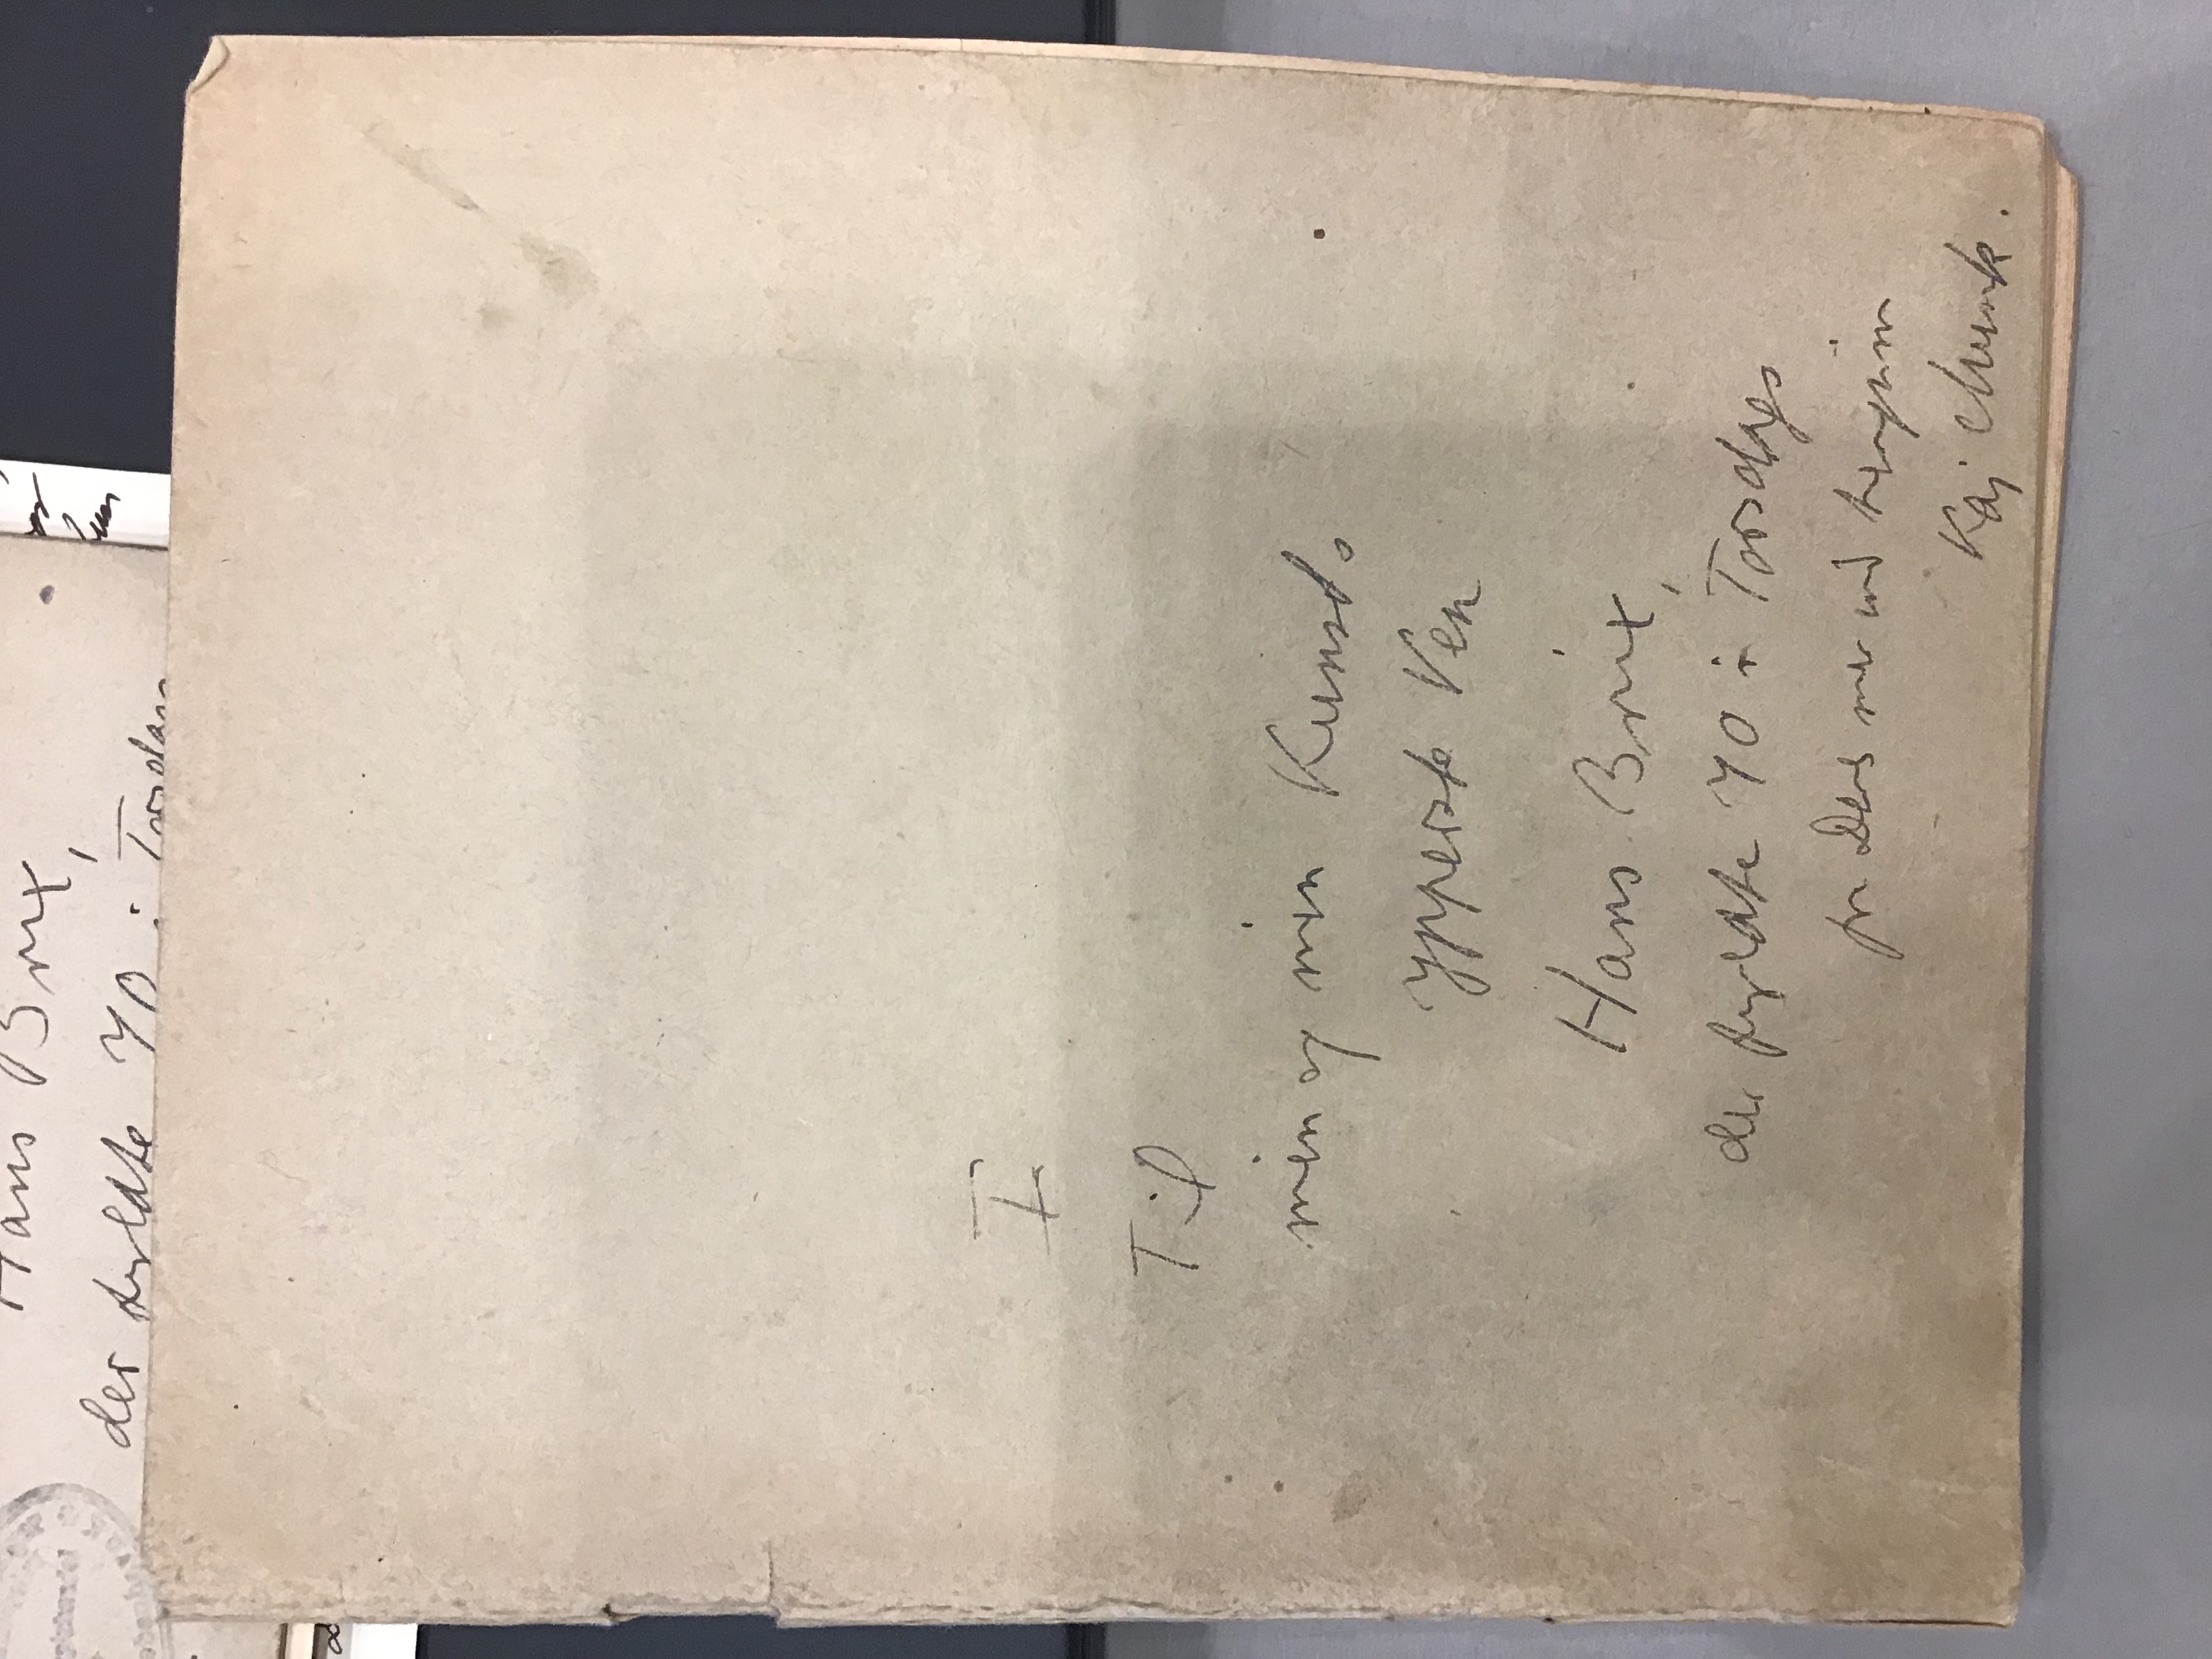 Hans Brix,
der fyldte 70 i Torsdags
I
Til
min og min Kunsts
ypperste Ven
Hans Brix,
der fyldte 70 i Torsdags
fra Deres mer end hengivne
Kaj Munk.